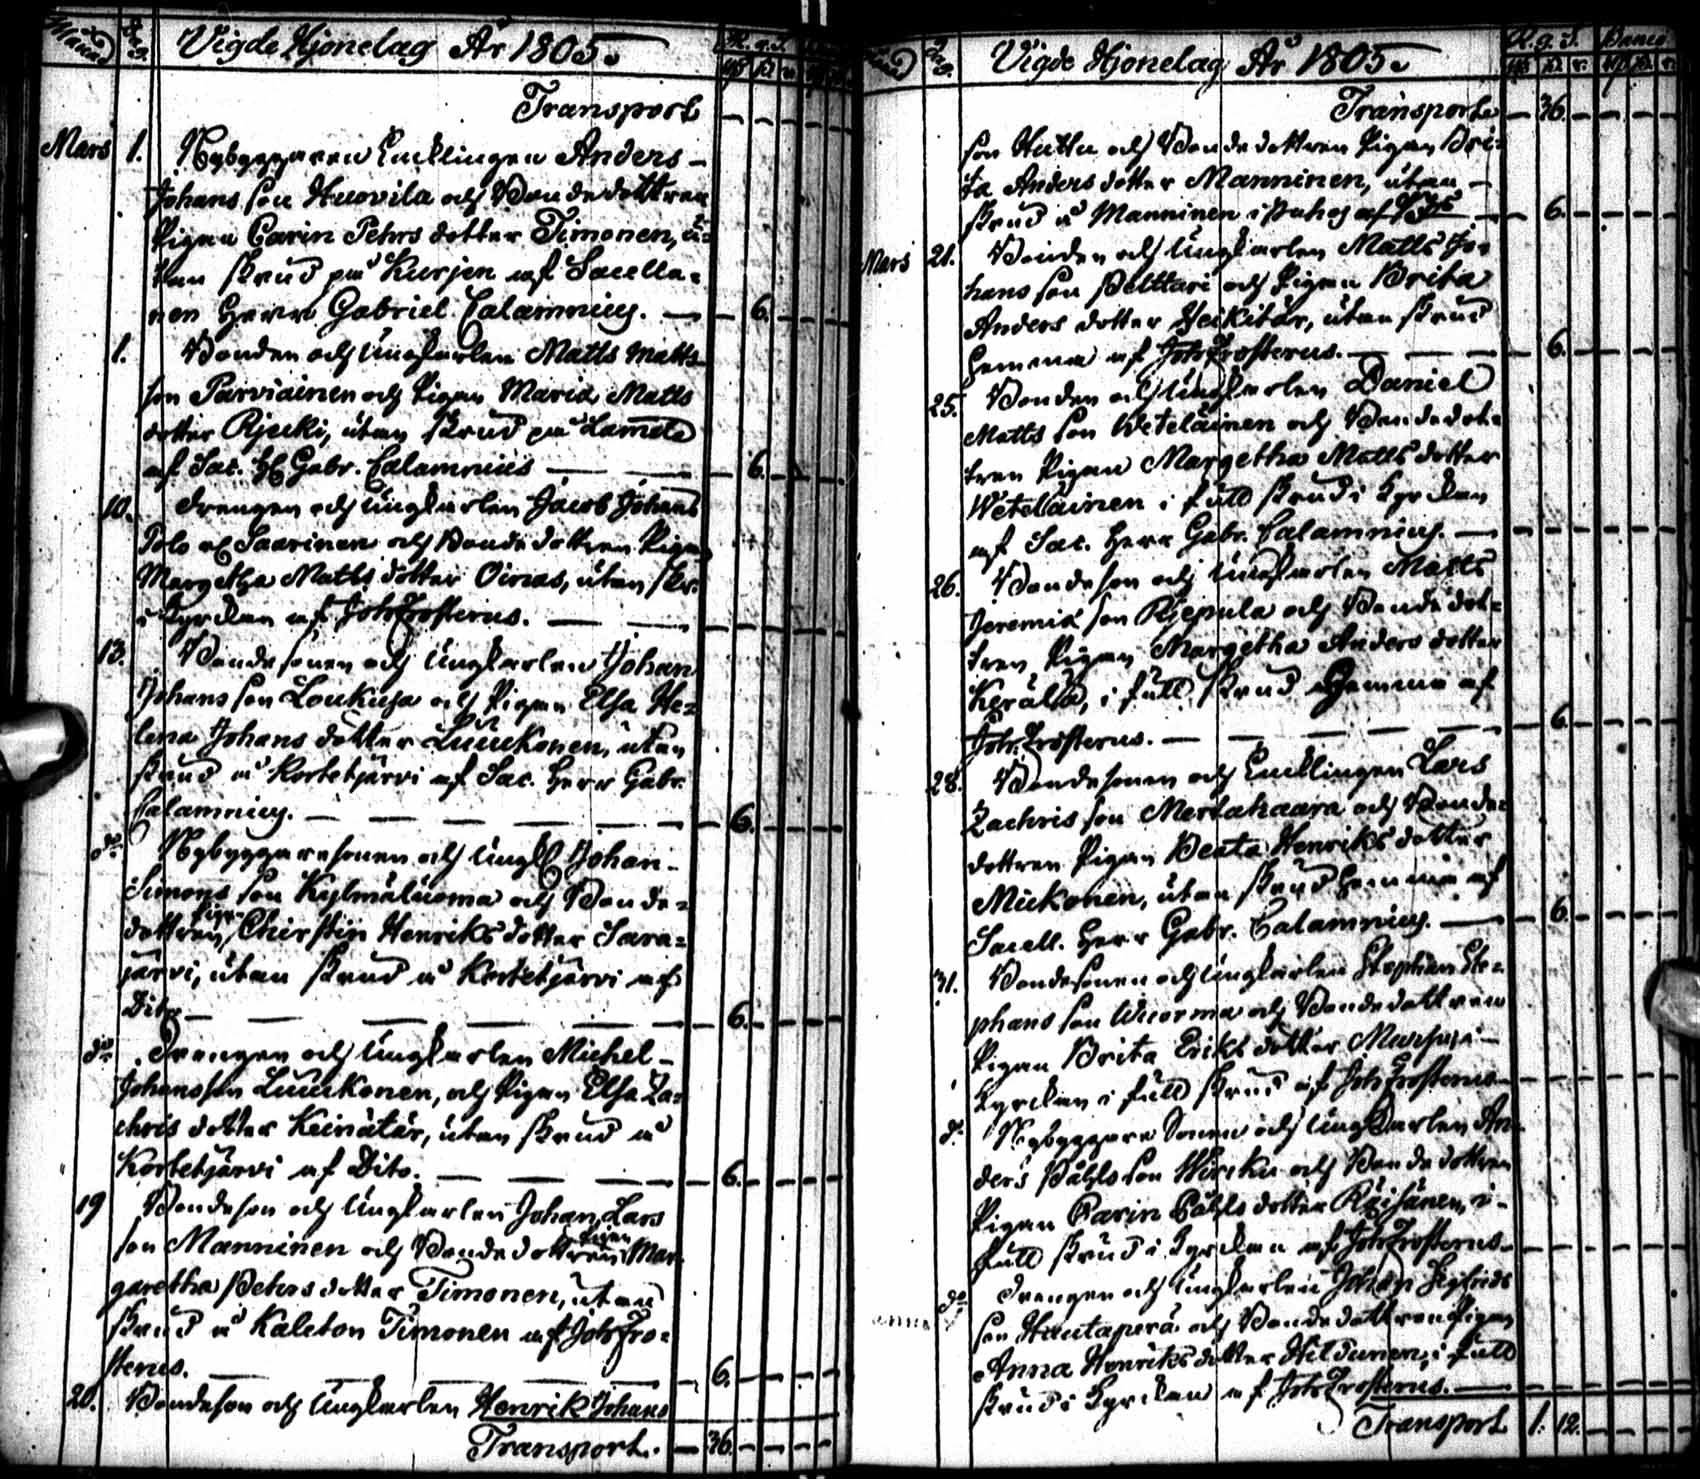 Månad Dag. Vigde Hjonelag År 1805. R. g. S.
Transport
Mars 1. Nybyggaren Encklingen Anders
Johans son Huovila och Bondedottren
Pigan Carin Pehrs dotter Timonen, u=
tan skrud på Kurjen af Sacella=
nen Herr Gabriel Calamnius. — 6.
1. Bonden och Ungkarlen Matts Matts
son Parviainen och Pigan Maria Matts
dotter Rjecki, utan skrud på Lamela
af Sac. H. Gabr. Calamnius — 6.
10. Drengen och Ungkarlen Jacob Johans
Polo el. Saarinen och Bonde dottren Pigan
Margetha Matts dotter Oinas, utan skr.
i Kyrckan af Joh. Frosterus.
13. Bondesonen och Ungkarlen Johan
Johans son Loukusa och Pigan Elsa He=
lena Johans dotter Luuckonen, utan
skrud å Kortetjärvi af Sac. Herr Gabr.
Calamnius. — 6.
do Nybyggaresonen och Ungk. Johan
Simons son Kylmäluoma och Bonde=
dottren Pigan Chirstin Henriks dotter Sara=
järvi, utan skrud å Kortetjärvi af
Dito — 6.
do Drengen och Ungkarlen Michel
Johansson Luuckonen, och Pigan Elsa Za=
chris dotter Keinätär, utan skrud å
Kortetjärvi af Dito. — 6.
19 Bondeson och Ungkarlen Johan Lars
son Manninen och Bonde dottren Pigan Mar=
garetha Pehrs dotter Timonen, utan
skrud å Kaleton Timonen af Joh. Fro=
sterus. — 6.
20. Bondeson och Ungkarlen Henrik Johans
Transport. — 36.
Månad Dag. Vigde Hjonelag År 1805. R. g. S. Banco
Transport — 36.
son Huttu och Bonde dottren Pigan Bri=
ta Anders dotter Manninen, utan
skrud å Manninen i Puhos af — 6.
Mars 21. Bonden och Ungkarlen Matts Jo=
hans son Pelttari och Pigan Brita
Anders dotter Heikitär, utan skrud
hemma af Joh. Frosterus. — 6.
25. Bonden och Ungkarlen Daniel
Matts son Weteläinen och Bondedot=
tren Pigan Margetha Matts dotter
Weteläinen i full skrud i Kyrckan
af Sac. Herr Gabr. Calamnius.
26. Bondeson och Ungkarlen Matts
Jeremiæ son Rjepula och Bondedot=
tren Pigan Margetha Anders dotter
Kerälä, i full skrud Hemma af
Joh. Frosterus. — 6.
28. Bondesonen och Encklingen Lars
Zachris son Mertahaara och Bonde=
dottren Pigan Beata Henriks dotter
Mickonen, utan skrud hemma af
Sacell. Herr Gabr. Calamnius. — 6.
31. Bondesonen och Ungkarlen Stephan Ste=
phans son Wuorma och Bondedottren
Pigan Brita Eriks dotter i
Kyrckan i full skrud af Joh. Frosterus
do Nybyggare Sonen och Ungkarlen An=
ders Påhls son Wircku och Bonde dottren
Pigan Carin Påhls dotter Räisänen, i
full skrud i Kyrckan af Joh. Frosterus
do Drengen och Ungkarlen Johan Sigfrids
son Hautaperä och Bonde dottren Pigan
Anna Henriks dotter Hildunen, i full
skrud i Kyrckan af Joh. Frosterus.
Transport 1. 12.